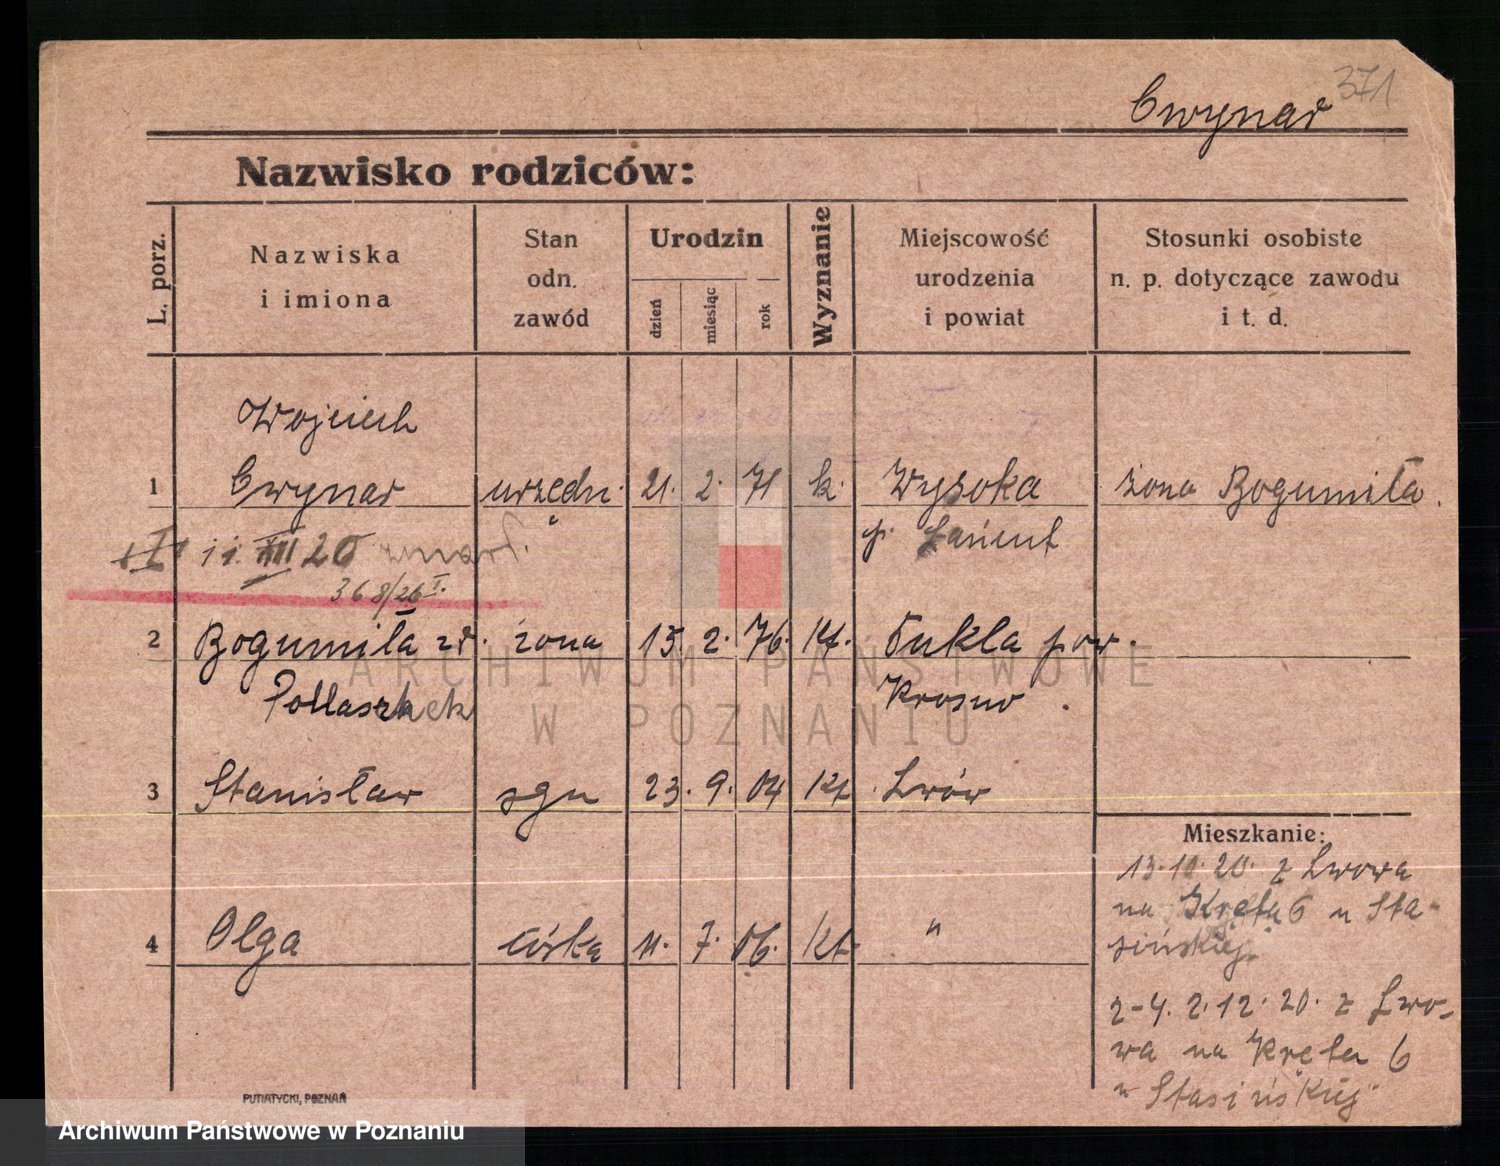 371
Cwynar
Nazwisko rodziców:
L. porz.
Nazwiska
i imiona
Stan
odn.
zawód
Urodzin
dzień
miesiąc
rok
Wyznanie
Miejscowość
urodzenia
i powiat
Stosunki osobiste
n. p. dotyczące zawodu
i t. d.
Wojciech
1 Cwynar urzędn. 21. 2. 71 k. Wysoka żona Bogumiła.
p. Łańcut
11. XII 20 zmarł
368/26 I.
2 Bogumiła zd. żona 15. 2. 76. kt. Dukla pow.
Pollaschek Krosno
3 Stanisław syn 23. 9. 04 kt. Lwów
Mieszkanie:
13.10.20. z Lwowa
na Kręta 6 u Sta-
sińskiej.
4 Olga córka 11. 7. 06. kt. "
2-4. 2.12.20. z Lwo-
wa na Kręta 6
u Stasińskiej
PUTIATYCKI, POZNAŃ
ARCHIWUM PAŃSTWOWE
W POZNANIU
Archiwum Państwowe w Poznaniu